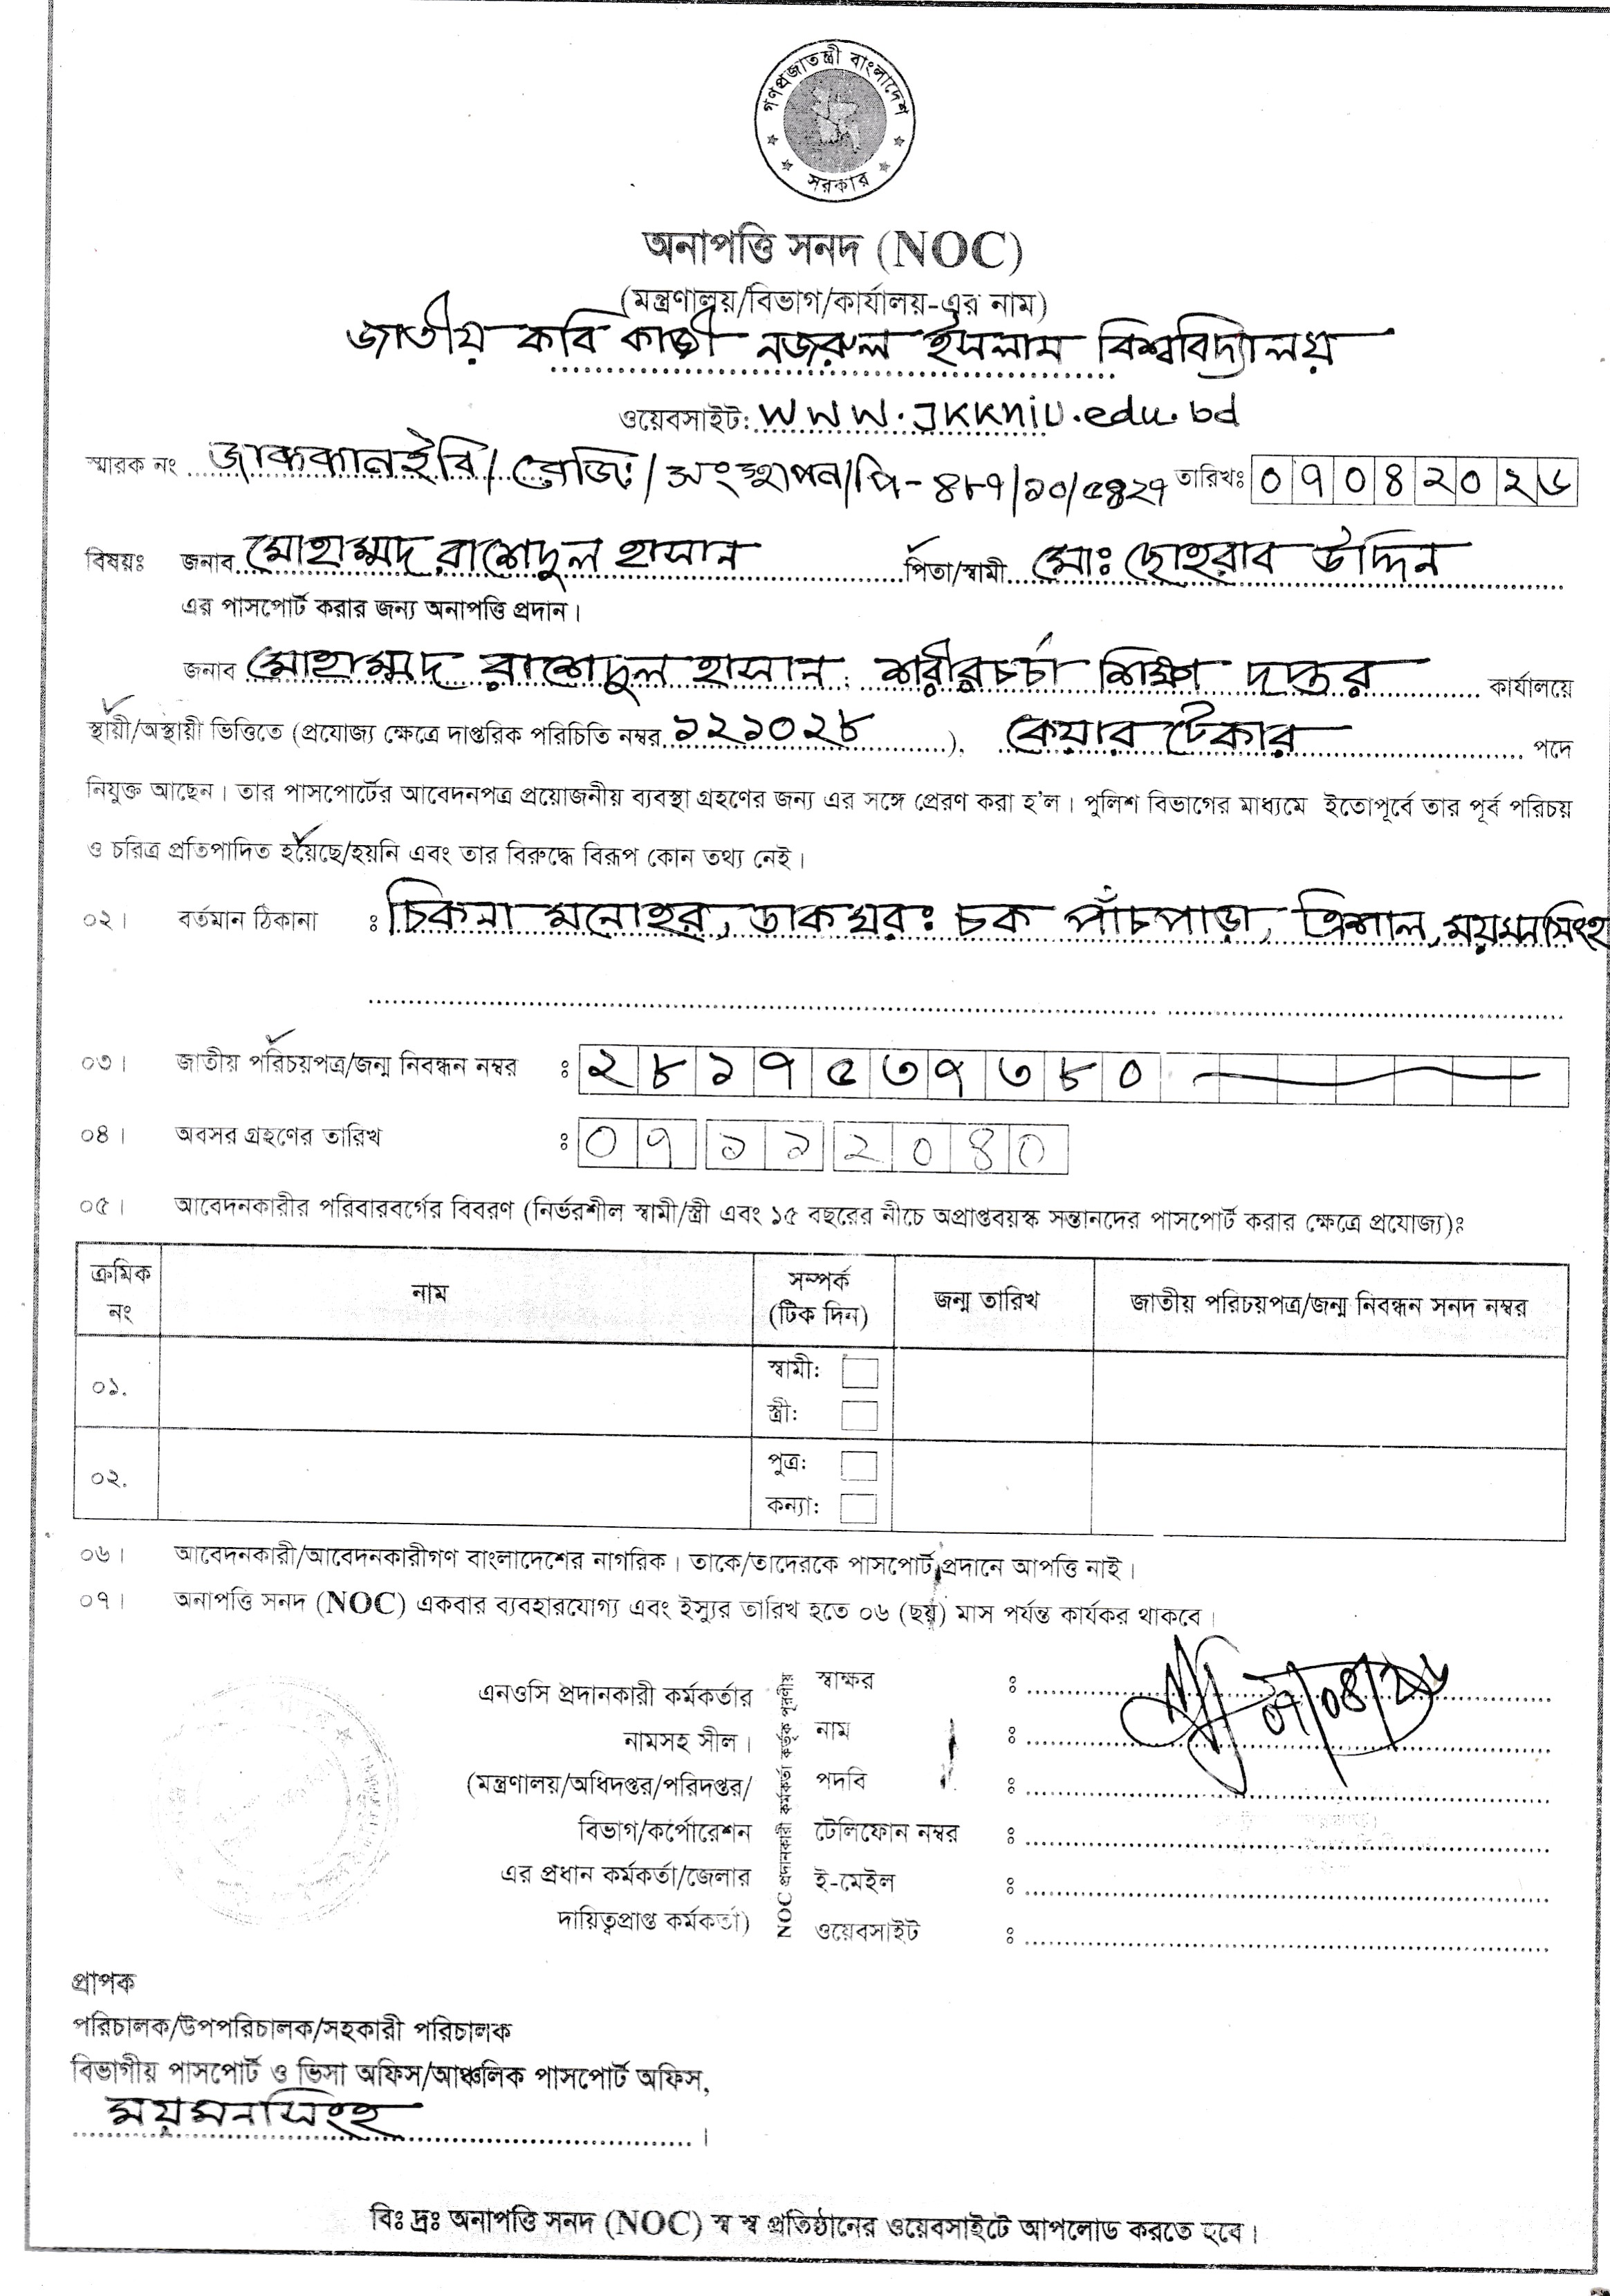 গণপ্রজাতন্ত্রী বাংলাদেশ
সরকার
অনাপত্তি সনদ (NOC)
(মন্ত্রণালয়/বিভাগ/কার্যালয়-এর নাম)
জাতীয় কবি কাজী নজরুল ইসলাম বিশ্ববিদ্যালয়
ওয়েবসাইট: www.jkkniu.edu.bd
স্মারক নং জাককানইবি/রেজিঃ/সংস্থাপন/পি-৪৮৭/১০/৫৪২৭ তারিখঃ ০৭০৪২০২৬
বিষয়ঃ জনাব মোহাম্মদ রাশেদুল হাসান পিতা/স্বামী মোঃ ছোহরাব উদ্দিন
এর পাসপোর্ট করার জন্য অনাপত্তি প্রদান।
জনাব মোহাম্মদ রাশেদুল হাসান, শরীরচর্চা শিক্ষা দপ্তর কার্যালয়ে
স্থায়ী/অস্থায়ী ভিত্তিতে (প্রযোজ্য ক্ষেত্রে দাপ্তরিক পরিচিতি নম্বর ১২১০২৮), কেয়ার টেকার পদে
নিযুক্ত আছেন। তার পাসপোর্টের আবেদনপত্র প্রয়োজনীয় ব্যবস্থা গ্রহণের জন্য এর সঙ্গে প্রেরণ করা হ'ল। পুলিশ বিভাগের মাধ্যমে ইতোপূর্বে তার পূর্ব পরিচয়
ও চরিত্র প্রতিপাদিত হয়েছে/হয়নি এবং তার বিরুদ্ধে বিরূপ কোন তথ্য নেই।
০২। বর্তমান ঠিকানা ঃ চিকনা মনোহর, ডাকঘরঃ চক পাঁচপাড়া, ত্রিশাল, ময়মনসিংহ
০৩। জাতীয় পরিচয়পত্র/জন্ম নিবন্ধন নম্বর ঃ ২৮১৭৫৩৭৩৮০
০৪। অবসর গ্রহণের তারিখ ঃ ০৭১১২০৪০
০৫। আবেদনকারীর পরিবারবর্গের বিবরণ (নির্ভরশীল স্বামী/স্ত্রী এবং ১৫ বছরের নীচে অপ্রাপ্তবয়স্ক সন্তানদের পাসপোর্ট করার ক্ষেত্রে প্রযোজ্য)ঃ
ক্রমিক নং নাম সম্পর্ক (টিক দিন) জন্ম তারিখ জাতীয় পরিচয়পত্র/জন্ম নিবন্ধন সনদ নম্বর
০১. স্বামী:
স্ত্রী:
০২. পুত্র:
কন্যা:
০৬। আবেদনকারী/আবেদনকারীগণ বাংলাদেশের নাগরিক। তাকে/তাদেরকে পাসপোর্ট প্রদানে আপত্তি নাই।
০৭। অনাপত্তি সনদ (NOC) একবার ব্যবহারযোগ্য এবং ইস্যুর তারিখ হতে ০৬ (ছয়) মাস পর্যন্ত কার্যকর থাকবে।
এনওসি প্রদানকারী কর্মকর্তার
নামসহ সীল।
(মন্ত্রণালয়/অধিদপ্তর/পরিদপ্তর/
বিভাগ/কর্পোরেশন
এর প্রধান কর্মকর্তা/জেলার
দায়িত্বপ্রাপ্ত কর্মকর্তা)
NOC প্রদানকারী কর্মকর্তা কর্তৃক পূরণীয়
স্বাক্ষর ঃ ০৭/০৪/২৬
নাম ঃ
পদবি ঃ
টেলিফোন নম্বর ঃ
ই-মেইল ঃ
ওয়েবসাইট ঃ
প্রাপক
পরিচালক/উপপরিচালক/সহকারী পরিচালক
বিভাগীয় পাসপোর্ট ও ভিসা অফিস/আঞ্চলিক পাসপোর্ট অফিস,
ময়মনসিংহ।
বিঃ দ্রঃ অনাপত্তি সনদ (NOC) স্ব স্ব প্রতিষ্ঠানের ওয়েবসাইটে আপলোড করতে হবে।